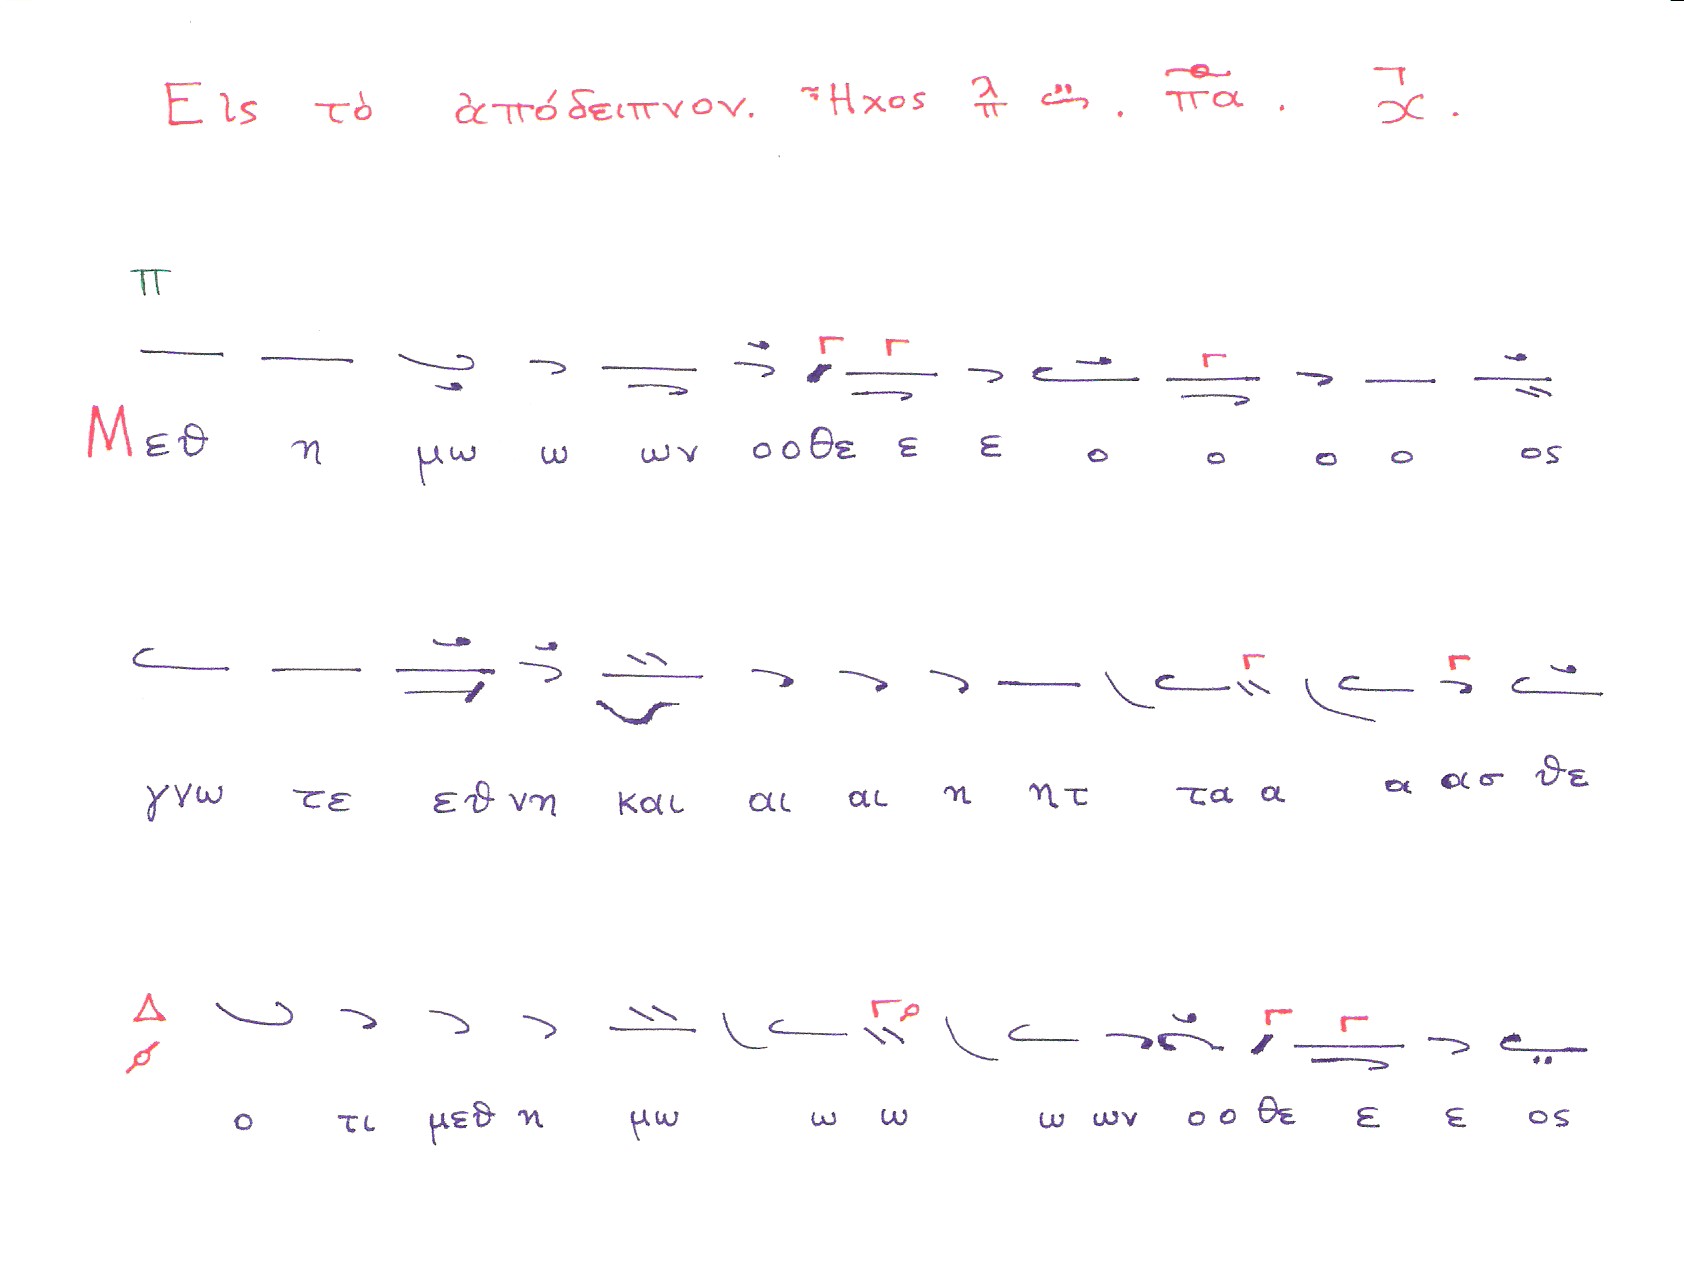 Εις τὸ ἀπόδειπνον. Ἦχος λ π . πα . χ .
π
Μεθ η μω ω ων ο ο θε ε ε ο ο ο ο ος
γνω τε εθ νη και αι αι η ητ τα α α ασ θε
Δ
ο τι μεθ η μω ω ω ω ων ο ο θε ε ε ος